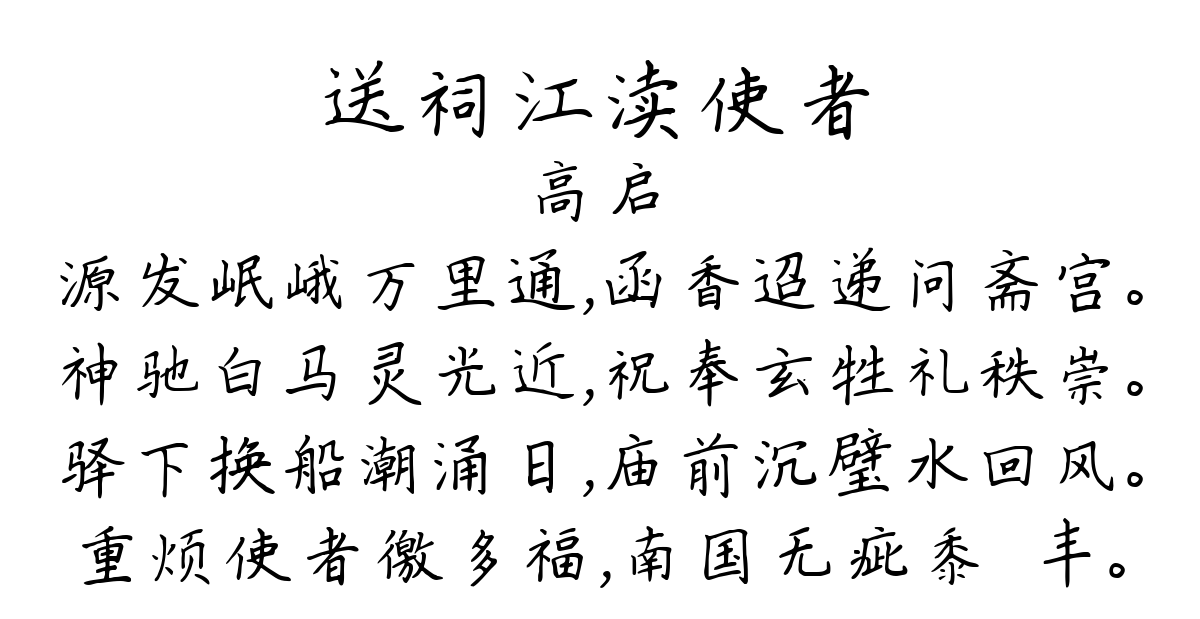 送祠江渎使者
高启
源发岷峨万里通,函香迢递问斋宫。
神驰白马灵光近,祝奉玄牲礼秩崇。
驿下换船潮涌日,庙前沉璧水回风。
重烦使者徼多福,南国无疵黍 丰。